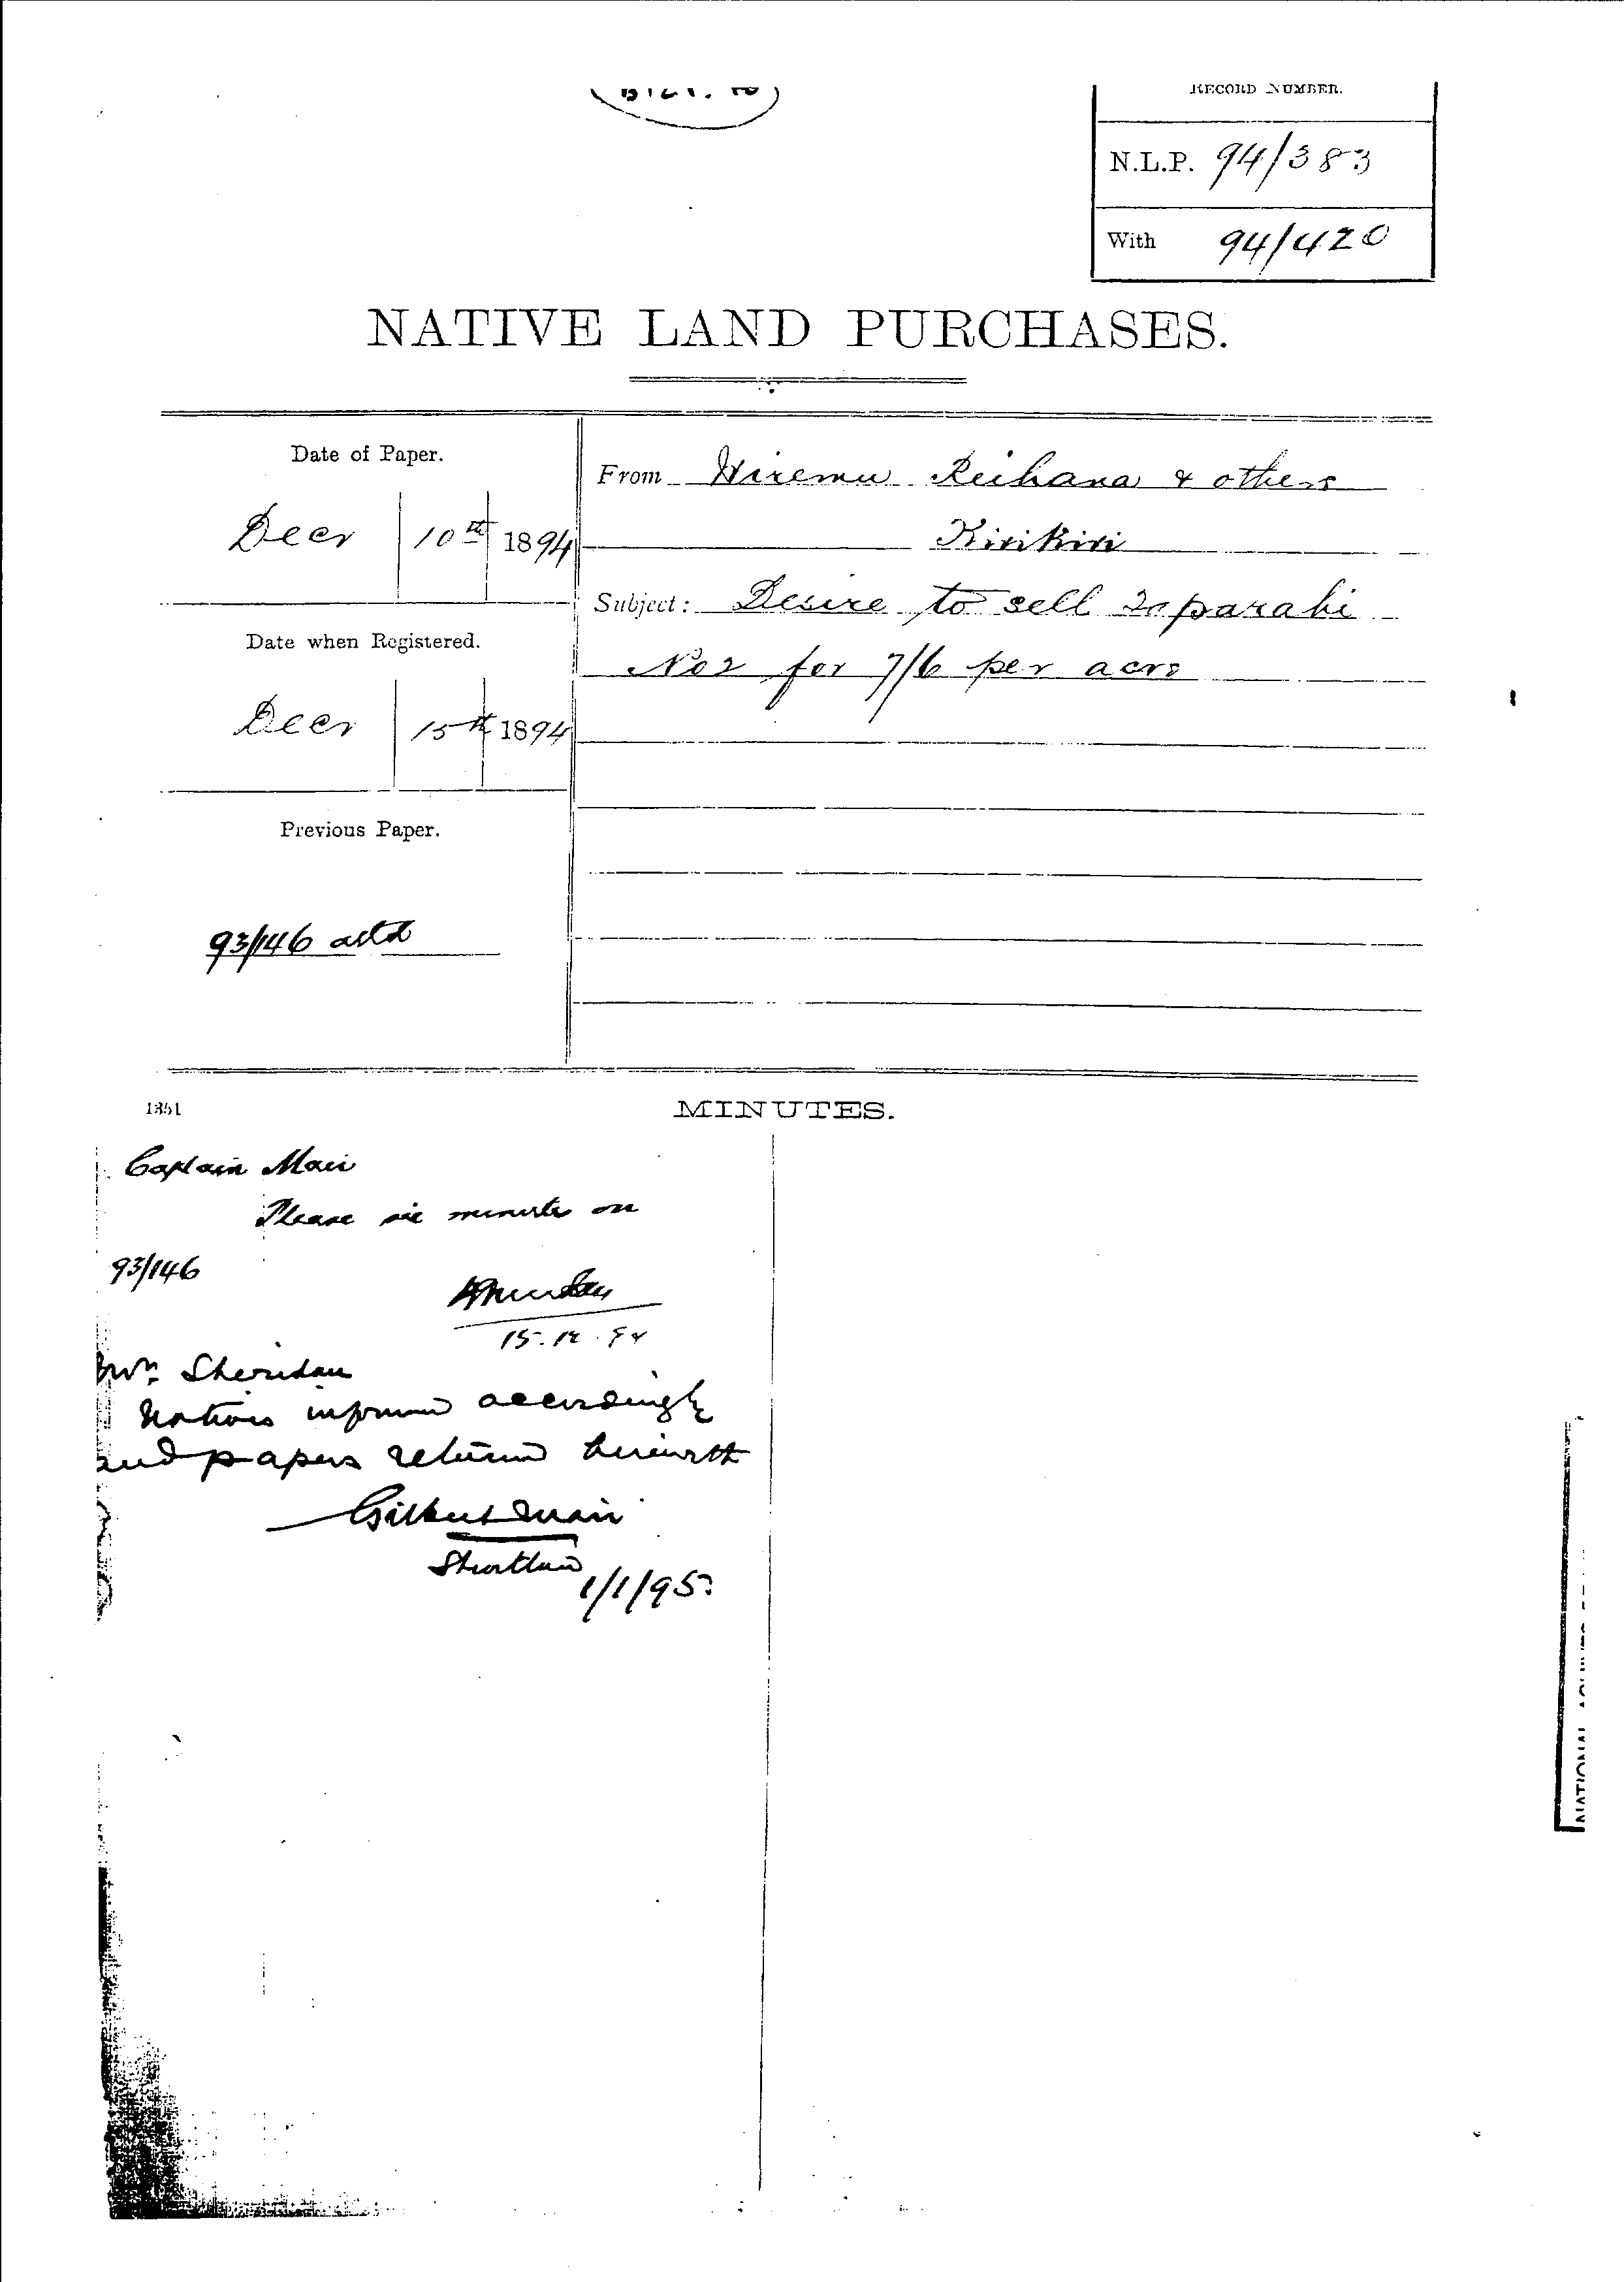 RECORD NUMBER.
N.L.P. 94/383
With 94/420
NATIVE LAND PURCHASES.
Date of Paper.
Decr 10th 1894
From Wiremu Reihana & others
Kirikiri
Subject: Desire to sell Taparahi
No 2 for 7/6 per acre
Date when Registered.
Decr 15th 1894
Previous Paper.
93/146 attd
1351
MINUTES.
Captain Mair
Please see minute on
93/146
15.12.94
Mr. Sheridan
Natives informed accordingly
and papers returned herewith
Gilbert Mair
Shortland
1/1/95.
NATIONAL